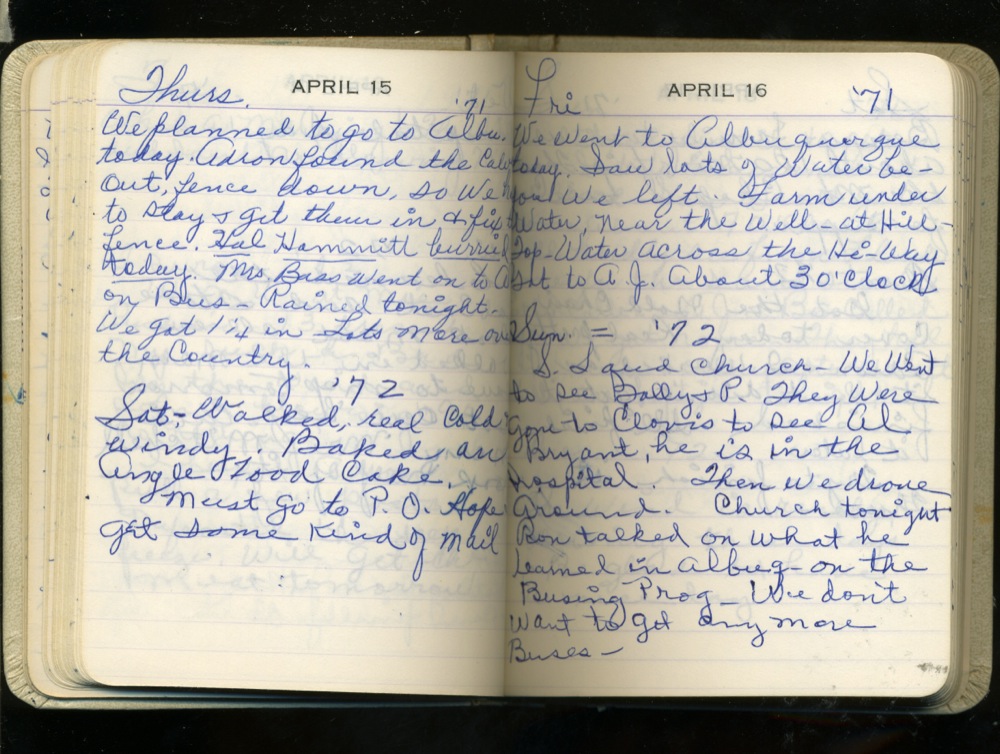 Thurs. APRIL 15 '71
We planned to go to Albu.
today. Aaron found the Calv
out, fence down, so We
to stay & get them in & fix
fence. Hal Hammitt burried
today. Ms Bass went on to A
on Bus - Rained tonight.
We got 1¼ in Lots more ov
the Country.
'72
Sat - Walked, real Cold
windy. Baked an
Angle Food Cake.
Must go to P.O. Hope
get some Kind of mail
Fri APRIL 16 '71
We went to Albuquerque
today. Saw lots of Water be-
We left. Farm under
Water, near the Well - at Hill-
Top - Water across the Hi-Way
to A.J. About 3 O'Clock
Sun. = '72
S. S and Church - We Went
to see & P. They Were
gone to Clovis to see Al
Bryant, he is in the
hospital. Then We drove
Around. Church tonight
Ron talked on What he
learned in Albuq - on the
Busing Prog - We don't
Want to get any more
Buses -